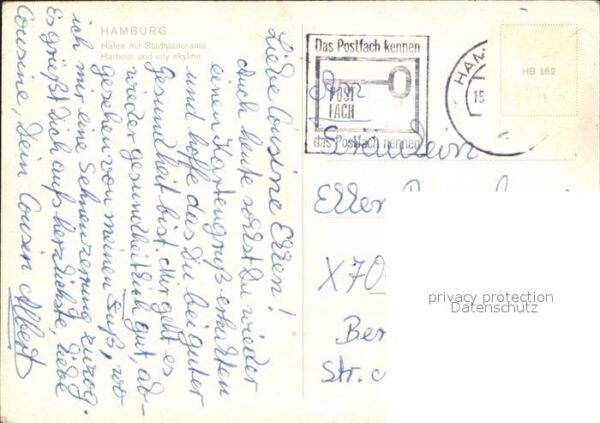 HAMBURG
Hafen mit Stadtpanorama
Harbour and city skyline
Liebe Cousine Ellen!
Auch heute sollst Du wieder
einen Kartengruß erhalten
und hoffe das Du bei guter
Gesundheit bist. Mir geht es
wieder gesundheitlich gut, ab-
gesehen von meinen Fuß, wo
ich mir eine Sehnenzerrung zuzog.
Es grüßt Dich aufs herzlichste, liebe
Cousine, Dein Cousin Albert
Das Postfach kennen
POST
FACH
das Postfach nennen
HAM
15
HB 162
Fräulein
Ellen
X70
Ber
Str.
privacy protection
Datenschutz